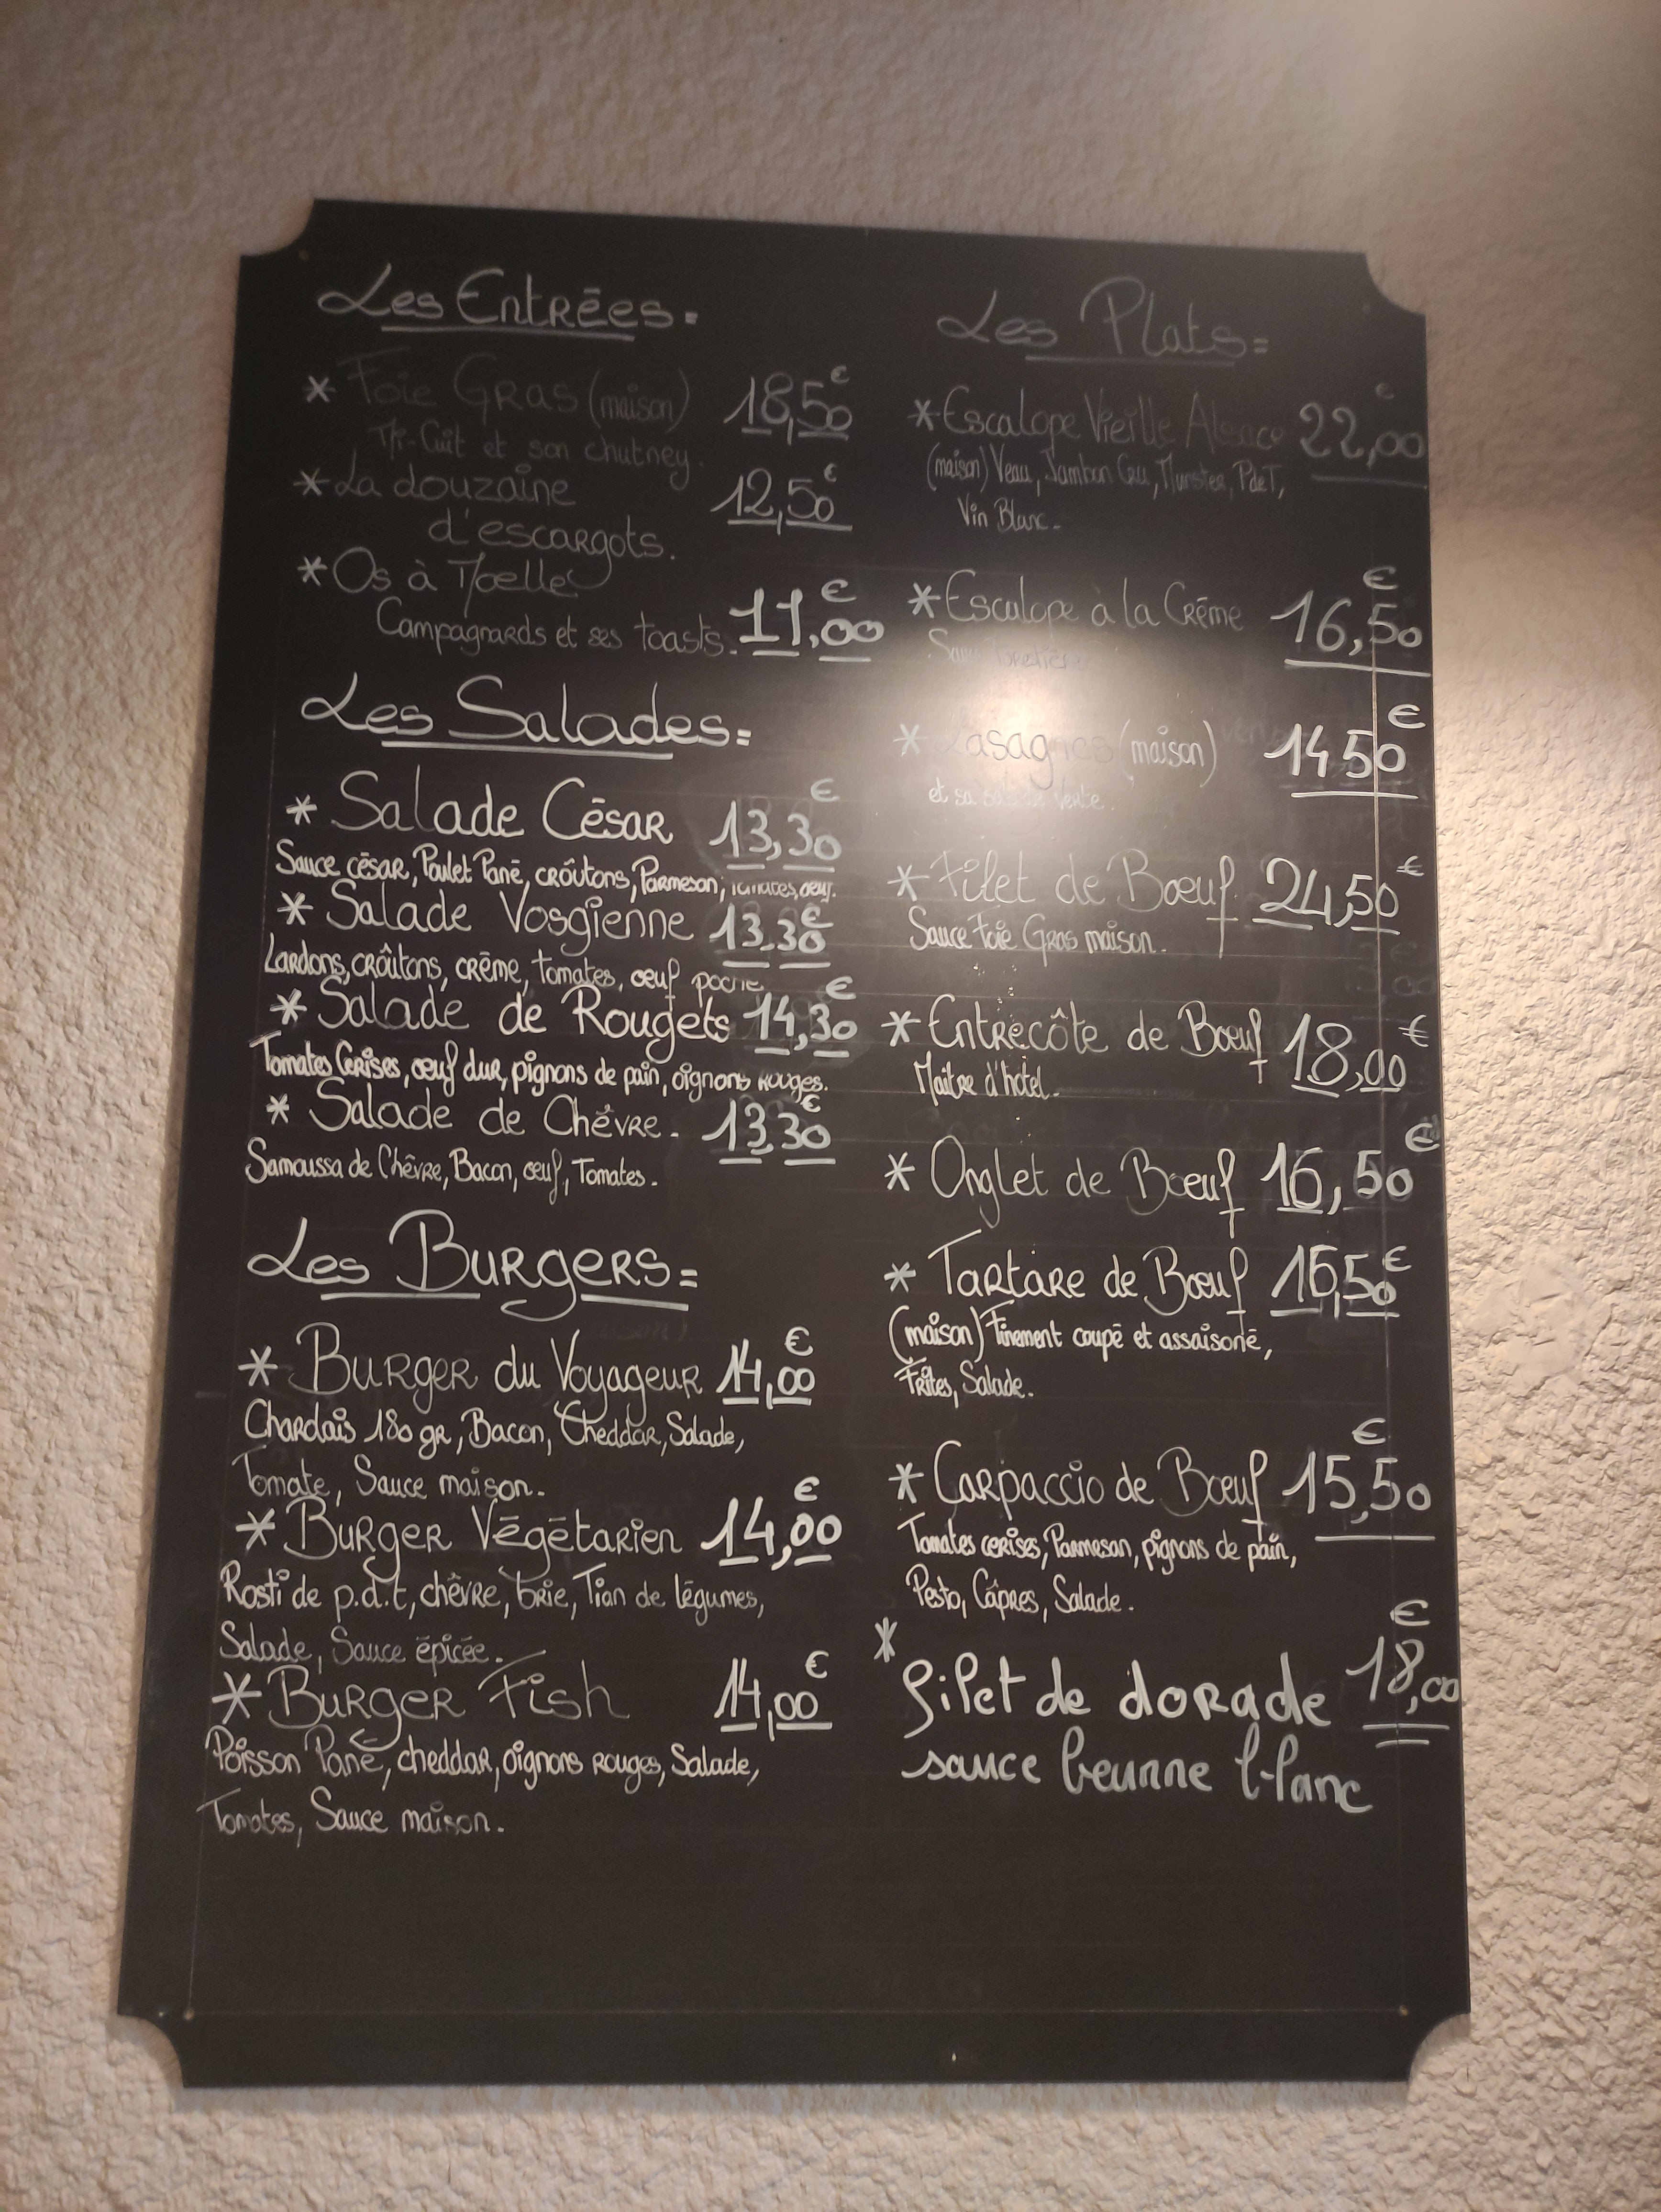 Les Entrées=
* Foie Gras (maison) 18,50€
Mi-Cuit et son chutney.
* La douzaine 12,50€
d'escargots.
* Os à Moelle
Campagnards et ses toasts. 11,00€
Les Salades=
* Salade César 13,30€
Sauce césar, Poulet Pané, croûtons, Parmesan, tomates, oeuf.
* Salade Vosgienne 13,30€
Lardons, croûtons, crème, tomates, oeuf poché
* Salade de Rougets 14,30€
Tomates Cerises, oeuf dur, pignons de pain, oignons rouges.
* Salade de Chèvre. 13,30€
Samoussa de Chèvre, Bacon, oeuf, Tomates.
Les Burgers=
* Burger du Voyageur 14,00€
Charolais 180 gr, Bacon, Cheddar, Salade,
Tomate, Sauce maison.
* Burger Végétarien 14,00€
Rosti de p.d.t, chèvre, brie, Tian de légumes,
Salade, Sauce épicée.
* Burger Fish 14,00€
Poisson Pané, cheddar, oignons rouges, Salade,
Tomates, Sauce maison.
Les Plats=
* Escalope Vieille Alsace 22,00€
(maison) Veau, Jambon Cru, Munster, PdeT,
Vin Blanc.
* Escalope à la Crème 16,50€
Sauce
* Lasagnes (maison) 14 50€
et sa salade verte.
* Filet de Boeuf 24,50€
Sauce Foie Gras maison.
* Entrecôte de Boeuf 18,00€
Maitre d'hotel.
* Onglet de Boeuf 16,50€
* Tartare de Boeuf 16,50€
(maison) Finement coupé et assaisoné,
Frites, Salade.
* Carpaccio de Boeuf 15,50€
Tomates cerises, Parmesan, pignons de pain,
Pesto, Câpres, Salade.
* filet de dorade 18,00€
sauce beurre blanc